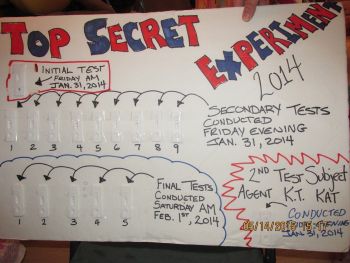 TOP SECRET EXPERIMENT
2014
INITIAL TEST
FRIDAY AM
JAN. 31, 2014
SECONDARY TESTS
CONDUCTED
FRIDAY EVENING
JAN. 31, 2014
1 2 3 4 5 6 7 8 9
FINAL TESTS
CONDUCTED
SATURDAY AM
FEB. 1ST, 2014
1 2 3 4 5
2ND TEST SUBJECT
AGENT K.T. KAT
CONDUCTED
FRIDAY EVENING
JAN 31, 2014